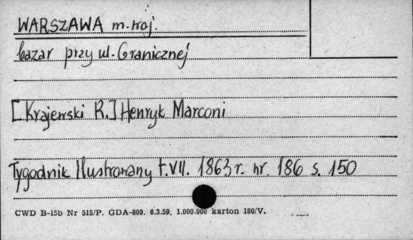 WARSZAWA m.woj.
bazar przy ul. Granicznej
[Krajewski R.] Henryk Marconi
Tygodnik Ilustrowany t.VII. 1863 r. nr. 186 s. 150
CWD B-15b Nr 515/P. GDA-809. 6.3.59. 1.000.000 karton 180/V.